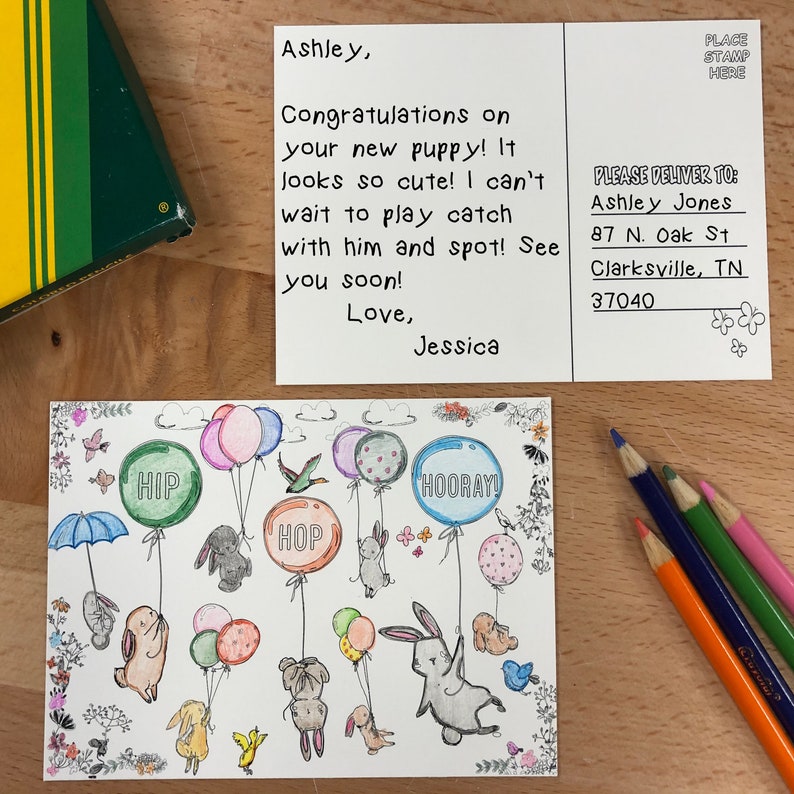 Ashley,
Congratulations on
your new puppy! It
looks so cute! I can't
wait to play catch
with him and spot! See
you soon!
Love,
Jessica
PLACE
STAMP
HERE
PLEASE DELIVER TO:
Ashley Jones
87 N. Oak St
Clarksville, TN
37040
®
COLORED PENCILS
HIP
HOP
HOORAY!
Crayola